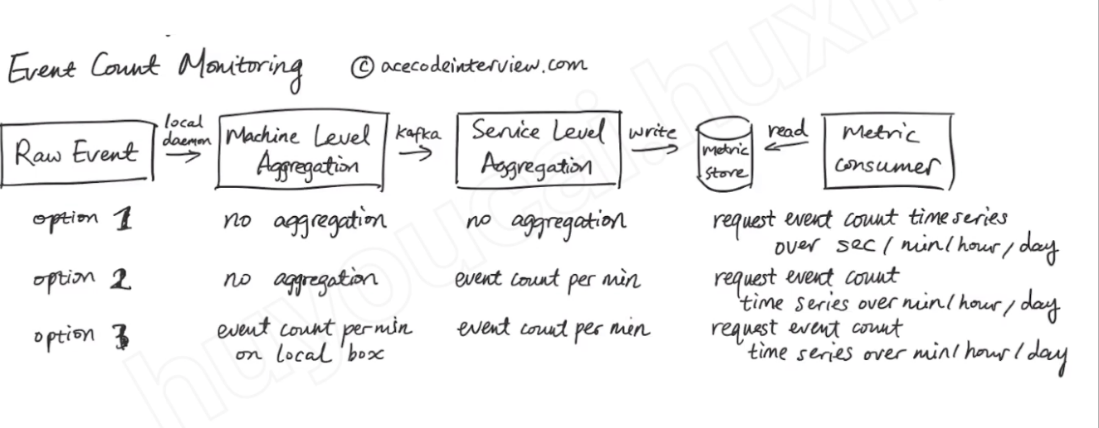 Event Count Monitoring © acecodeinterview.com
local daemon
kafka
write
read
Raw Event
Machine Level Aggregation
Service Level Aggregation
metric store
Metric Consumer
option 1
no aggregation
no aggregation
request event count time series
over sec / min / hour / day
option 2
no aggregation
event count per min
request event count
time series over min / hour / day
option 3
event count per min
on local box
event count per min
request event count
time series over min / hour / day